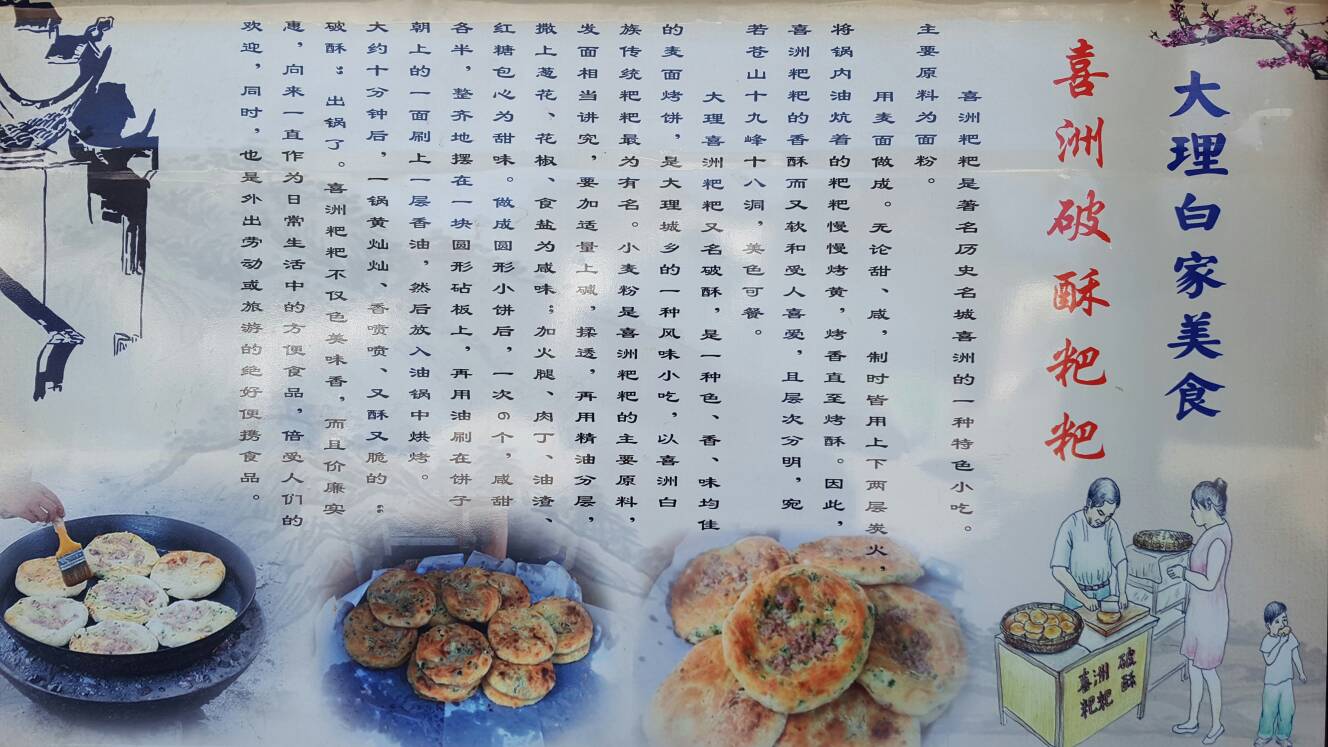 大理白家美食
喜洲破酥粑粑
喜洲粑粑是著名历史名城喜洲的一种特色小吃。
主要原料为面粉。
用麦面做成。无论甜、咸，制时皆用上下两层炭火，
将锅内油炕着的粑粑慢慢烤黄，烤香直至烤酥。因此，
喜洲粑粑的香酥而又软和受人喜爱，且层次分明，宛
若苍山十九峰十八洞，美色可餐。
大理喜洲粑粑又名破酥，是一种色、香、味均佳
的麦面烤饼，是大理城乡的一种风味小吃，以喜洲白
族传统粑粑最为有名。小麦粉是喜洲粑粑的主要原料，
发面相当讲究，要加适量上碱，揉透，再用精油分层，
撒上葱花、花椒、食盐为咸味；加火腿、肉丁、油渣、
红糖包心为甜味。做成圆形小饼后，一次6个，咸甜
各半，整齐地摆在一块圆形砧板上，再用油刷在饼子
朝上的一面刷上一层香油，然后放入油锅中烘烤。
大约十分钟后，一锅黄灿灿、香喷喷、又酥又脆的“
破酥”出锅了。喜洲粑粑不仅色美味香，而且价廉实
惠，向来一直作为日常生活中的方便食品，倍受人们的
欢迎，同时，也是外出劳动或旅游的绝好便携食品。
破酥
喜洲
粑粑